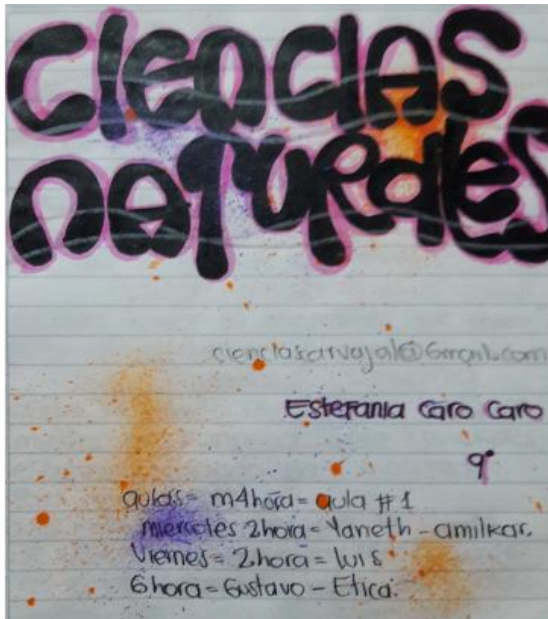 CIENCIAS
NATURALES
cienciascarvajal@Gmail.com
Estefania Caro Caro
9°
aulas= m4hora= aula #1
miercoles 2hora= Yaneth - amilkar.
Viernes= 2hora= luis
6hora= Gustavo - Etica.